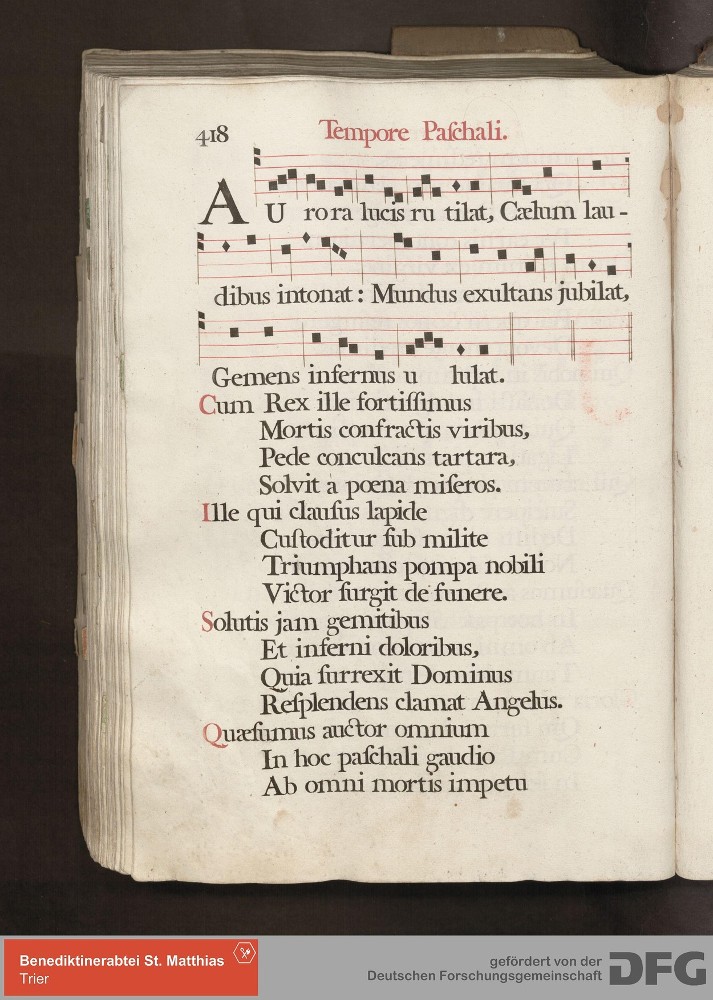 418 Tempore Paſchali.
AU rora lucis ru tilat, Cælum lau-
dibus intonat: Mundus exultans jubilat,
Gemens infernus u lulat.
Cum Rex ille fortiſſimus
Mortis confractis viribus,
Pede conculcans tartara,
Solvit a poena miſeros.
Ille qui clauſus lapide
Cuſtoditur ſub milite
Triumphans pompa nobili
Victor ſurgit de funere.
Solutis jam gemitibus
Et inferni doloribus,
Quia ſurrexit Dominus
Reſplendens clamat Angelus.
Quæſumus auctor omnium
In hoc paſchali gaudio
Ab omni mortis impetu
Benediktinerabtei St. Matthias
Trier
gefördert von der
Deutschen Forschungsgemeinschaft
DFG